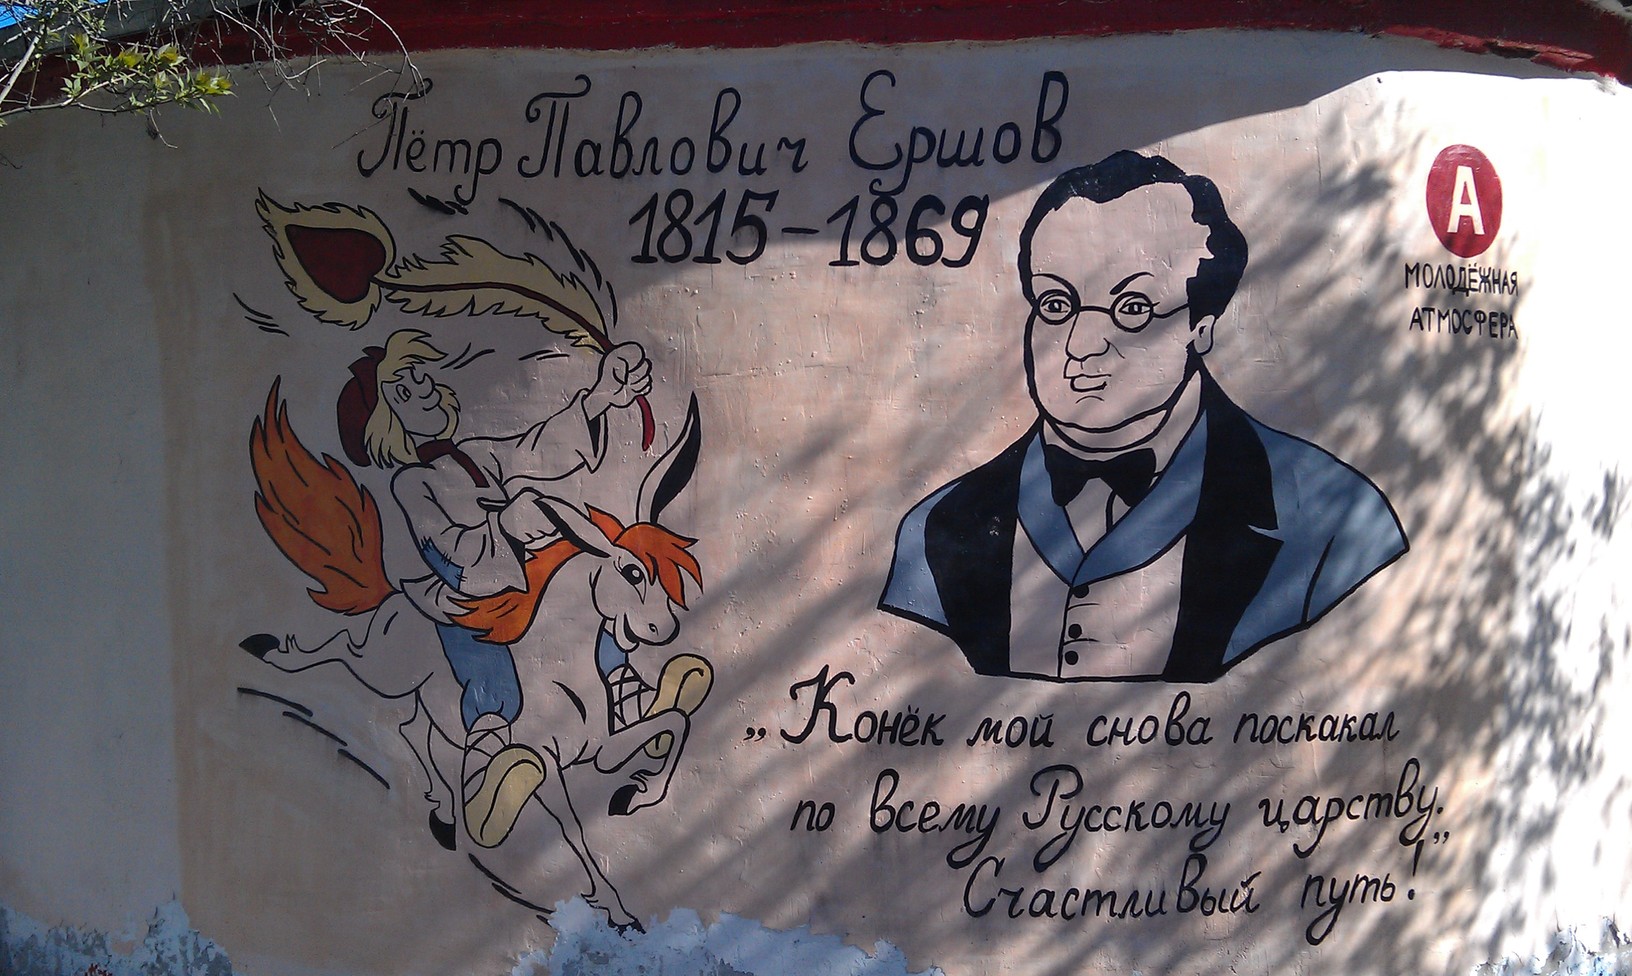 Пётр Павлович Ершов
1815-1869
А
МОЛОДЁЖНАЯ
АТМОСФЕРА
„Конёк мой снова поскакал
по всему Русскому царству.„
Счастливый путь!